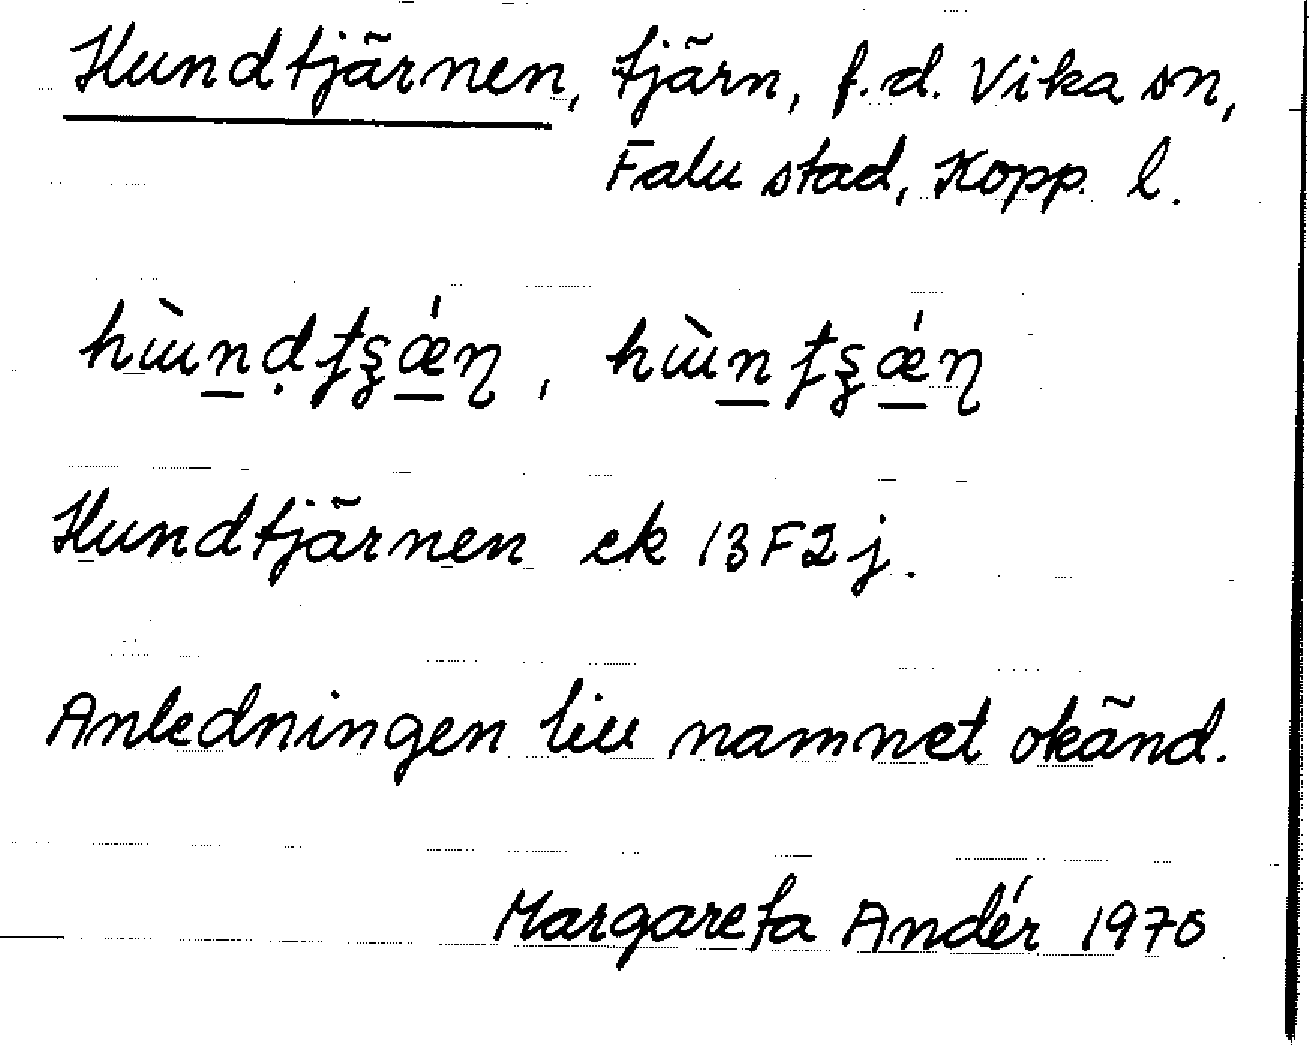 Hundtjärnen, tjärn, f.d. Vika sn,
Falu stad, Kopp. l.
Hundtjärnen ek 13F2j.
Anledningen till namnet okänd.
Margareta Andér 1970